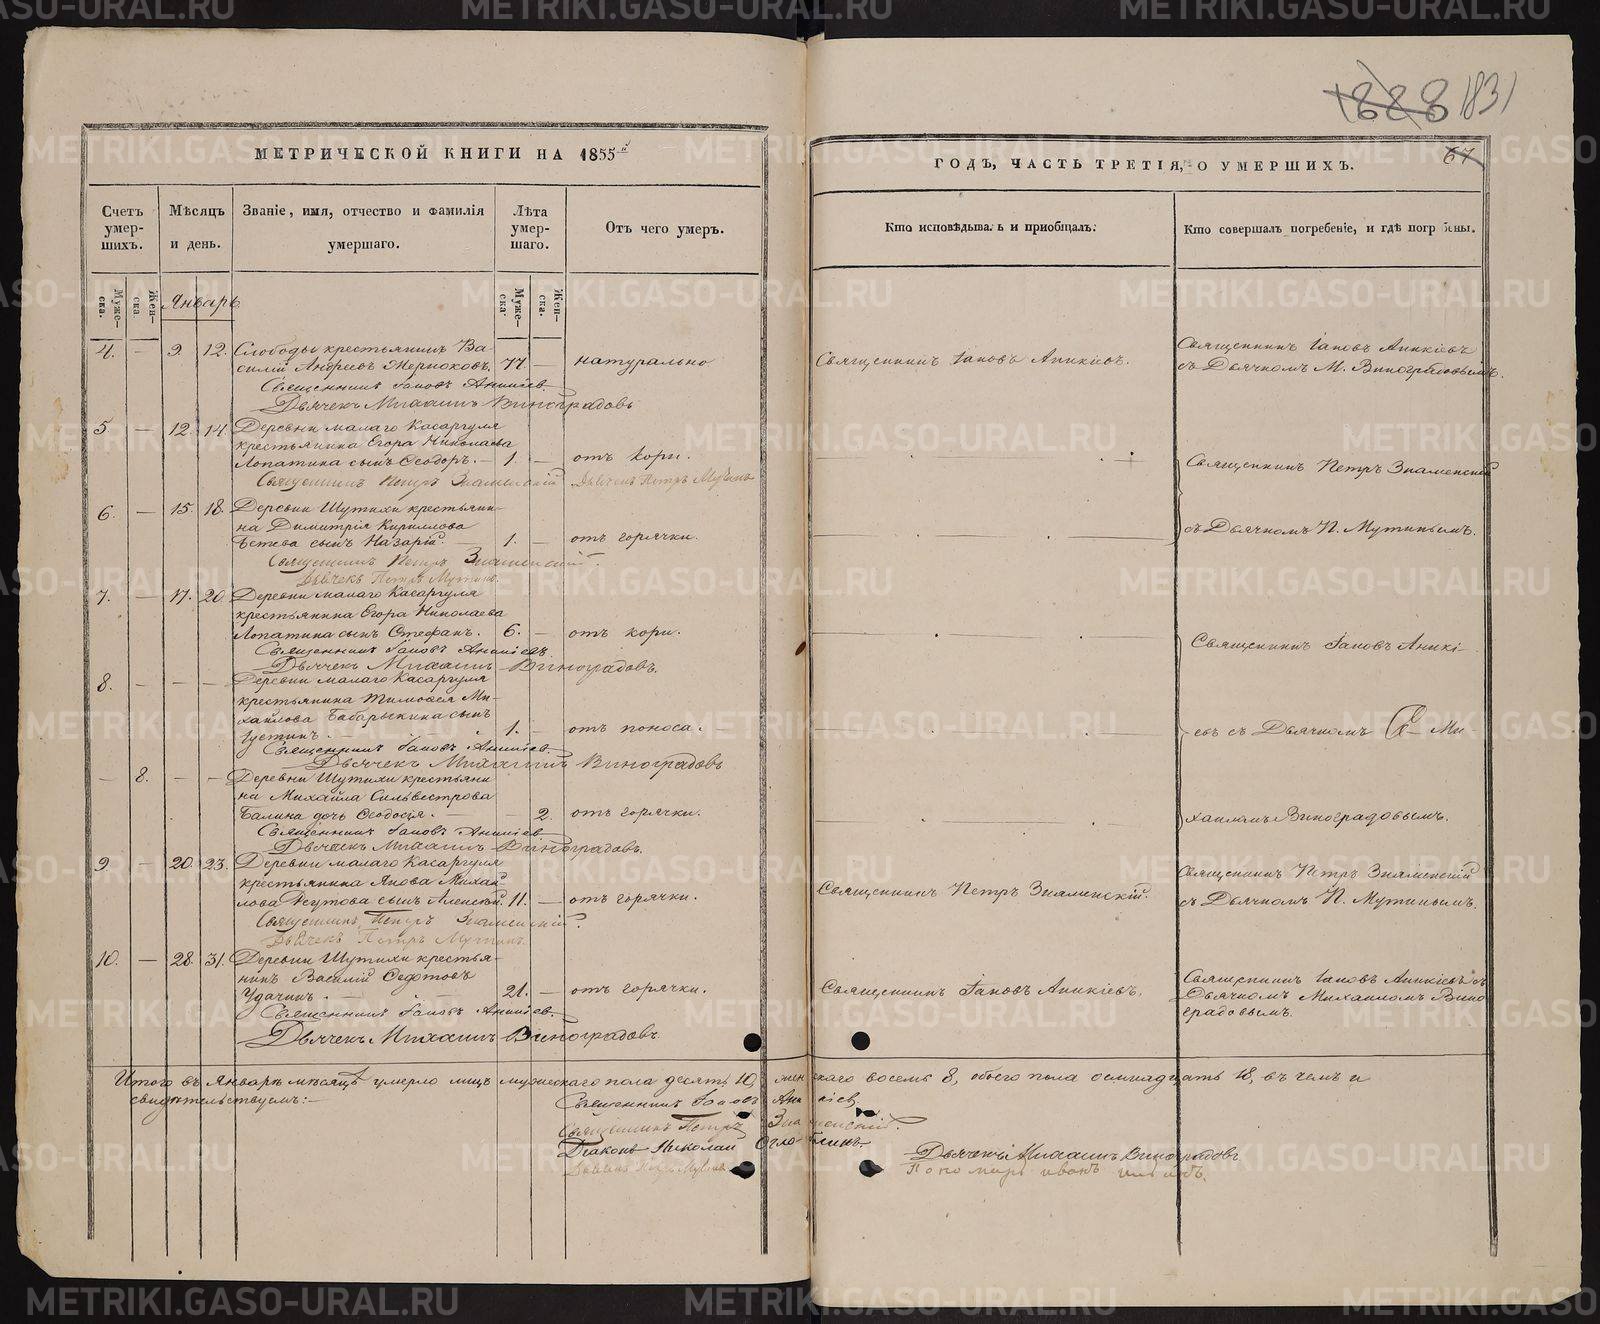 1888 1831
МЕТРИЧЕСКОЙ КНИГИ НА 1855й
ГОДЪ, ЧАСТЬ ТРЕТІЯ, О УМЕРШИХЪ.
67
Счетъ умер-шихъ.
Мѣсяцъ и день.
Званіе, имя, отчество и фамилія умершаго.
Лѣта умер-шаго.
Отъ чего умеръ.
Кто исповѣдывалъ и пріобщалъ.
Кто совершалъ погребеніе, и гдѣ погребены.
Муже-ска.
Жен-ска.
Январь
Муже-ска.
Жен-ска.
4. — 9. 12. Слободы крестьянинъ Ва-
силій Андреевъ 77. — натурально
Священникъ Іаковъ Аникіевъ.
Священникъ Іаковъ Аникіевъ
съ Дьячкомъ М. Виноградовымъ.
Священникъ Іаковъ Аникіевъ
Дьячекъ Михаилъ Виноградовъ
5. — 12. 14. Деревни малаго Касаргуля
крестьянина Егора Николаева
Лопатина сынъ Ѳеодоръ. — 1. — отъ кори.
Священникъ Петръ Знаменскій
Священникъ Петръ Знаменскій Дьячекъ Петръ Мутинъ
6. — 15. 18. Деревни Шутихи крестьяни-
на Димитрія Кириллова
сынъ Назарій. — 1. — отъ горячки.
съ Дьячкомъ П. Мутинымъ.
Священникъ Петръ Знаменскій.
Дьячекъ Петръ Мутинъ.
7. — 17. 20. Деревни малаго Касаргуля
крестьянина Егора Николаева
Лопатина сынъ Стефанъ. 6. — отъ кори.
Священникъ Іаковъ Аникі-
Священникъ Іаковъ Аникіевъ
Дьячекъ Михаилъ Виноградовъ.
8. — — — Деревни малаго Касаргуля
крестьянина Тимоѳея Ми-
хайлова Бабарыкина сынъ
Іустинъ. — 1. — отъ поноса.
евъ съ Дьячкомъ Ми-
Священникъ Іаковъ Аникіев.
Дьячекъ Михаилъ Виноградовъ
— 8. — — Деревни Шутихи крестьяни
на Михайла Сильвестрова
Балина дочь Ѳеодосія. — 2. отъ горячки.
хаиломъ Виноградовымъ.
Священникъ Іаковъ Аникіев.
Дьячекъ Михаилъ Виноградовъ.
9. — 20. 23. Деревни малаго Касаргуля
крестьянина Якова Михай-
лова сынъ Алексѣй. 11. — отъ горячки.
Священникъ Петръ Знаменскій.
Священникъ Петръ Знаменскій
съ Дьячкомъ П. Мутинымъ.
Священникъ Петръ Знаменскій.
Дьячекъ Петръ Мутинъ.
10. — 28. 31. Деревни Шутихи крестья-
нинъ Василій Ѳедотовъ
Удачинъ. — 21. — отъ горячки.
Священникъ Іаковъ Аникіевъ.
Священникъ Іаковъ Аникіевъ съ
Дьячкомъ Михаиломъ Вино
градовымъ.
Священникъ Іаковъ Аникіев.
Дьячекъ Михаилъ Виноградовъ.
Итого въ Январѣ мѣсяцѣ умерло лицъ мужескаго пола десять 10, женскаго восемь 8, обоего пола осмнадцать 18, въ чемъ и
свидѣтельствуемъ:—
Священникъ Іаковъ Аникіев.
Священникъ Петръ Знаменскій.
Діаконъ Николай Оглоблинъ.
Дьячекъ Петръ Мутинъ.
Дьячекъ Михаилъ Виноградовъ
Пономарь Иванъ
METRIKI.GASO-URAL.RU